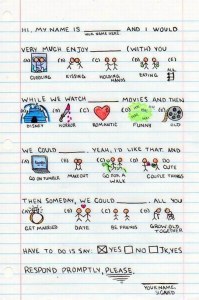 HI, MY NAME IS ______ AND I WOULD
YOUR NAME HERE
VERY MUCH ENJOY ______ (WITH) YOU
(A) (B) (C) (D) (E)
CUDDLING KISSING HOLDING HANDS EATING ALL
WHILE WE WATCH ______ MOVIES AND THEN
DISNEY HORROR ROMANTIC FUNNY OLD
WE COULD ______. YEAH, I'D LIKE THAT. AND
(A) (B) (C) (D) DO CUTE
GO ON TUMBLR MAKEOUT GO FOR A WALK COUPLE THINGS
THEN SOMEDAY, WE COULD ______. ALL YOU
(A) (B) (C) (D)
GET MARRIED DATE BE FRIENDS GROW OLD TOGETHER
HAVE TO DO IS SAY: YES NO JK, YES
RESPOND PROMPTLY, PLEASE.
YOUR NAME,